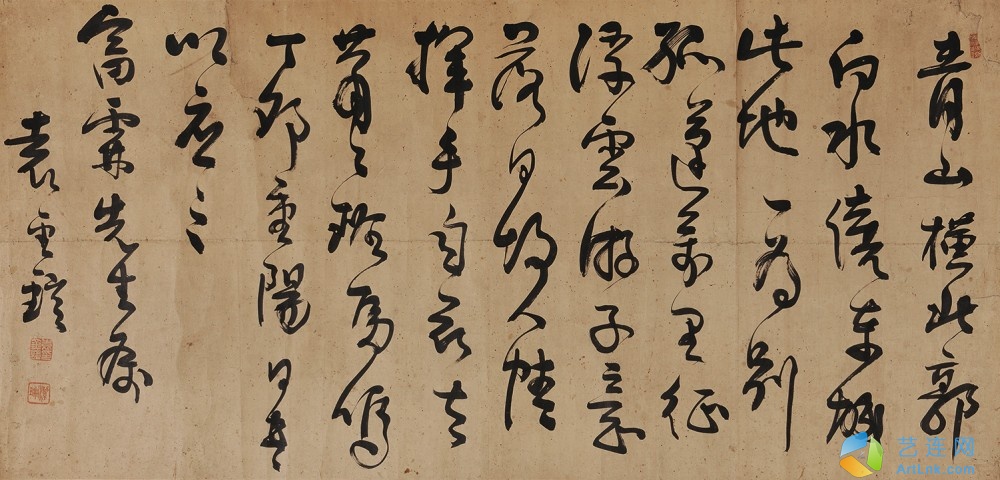 青山橫北郭
白水遶東城
此地一為別
孤蓬萬里征
浮雲游子意
落日故人情
揮手自茲去
蕭々班馬鳴
丁卯重陽日書
以應之
富霖先生屬
袁
艺连网
ArtLnk.com